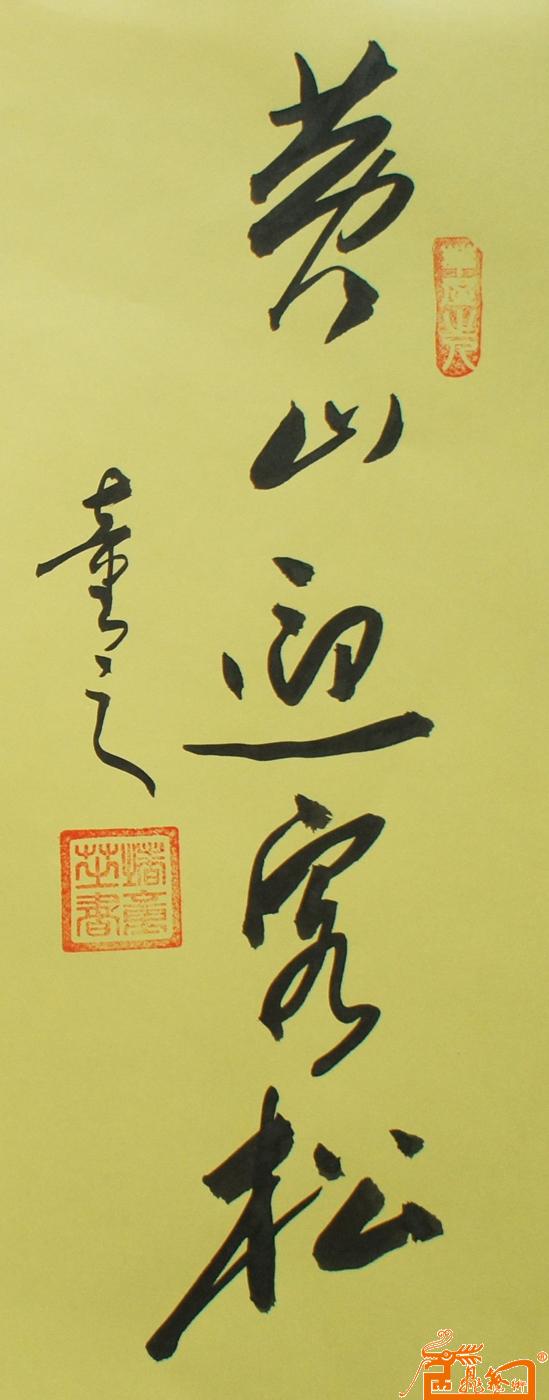 黄山迎客松
童之